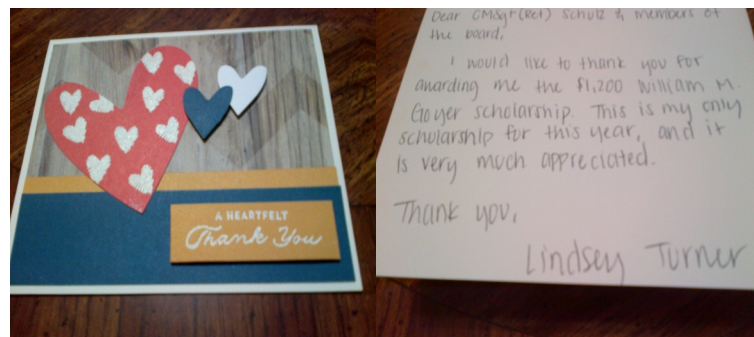 A HEARTFELT
Thank You
Dear CMSgt (Ret) Schulz & members of
the board,
I would like to thank you for
awarding me the $1,200 William M.
Goyer scholarship. This is my only
scholarship for this year, and it
is very much appreciated.
Thank you,
Lindsey Turner